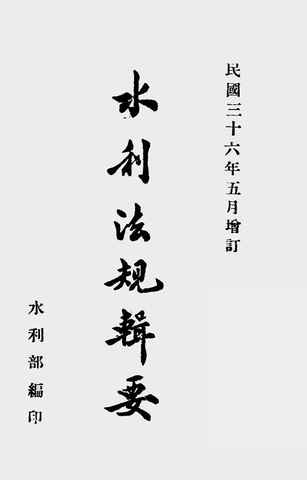 民國三十六年五月增訂
水利法規輯要
水利部編印